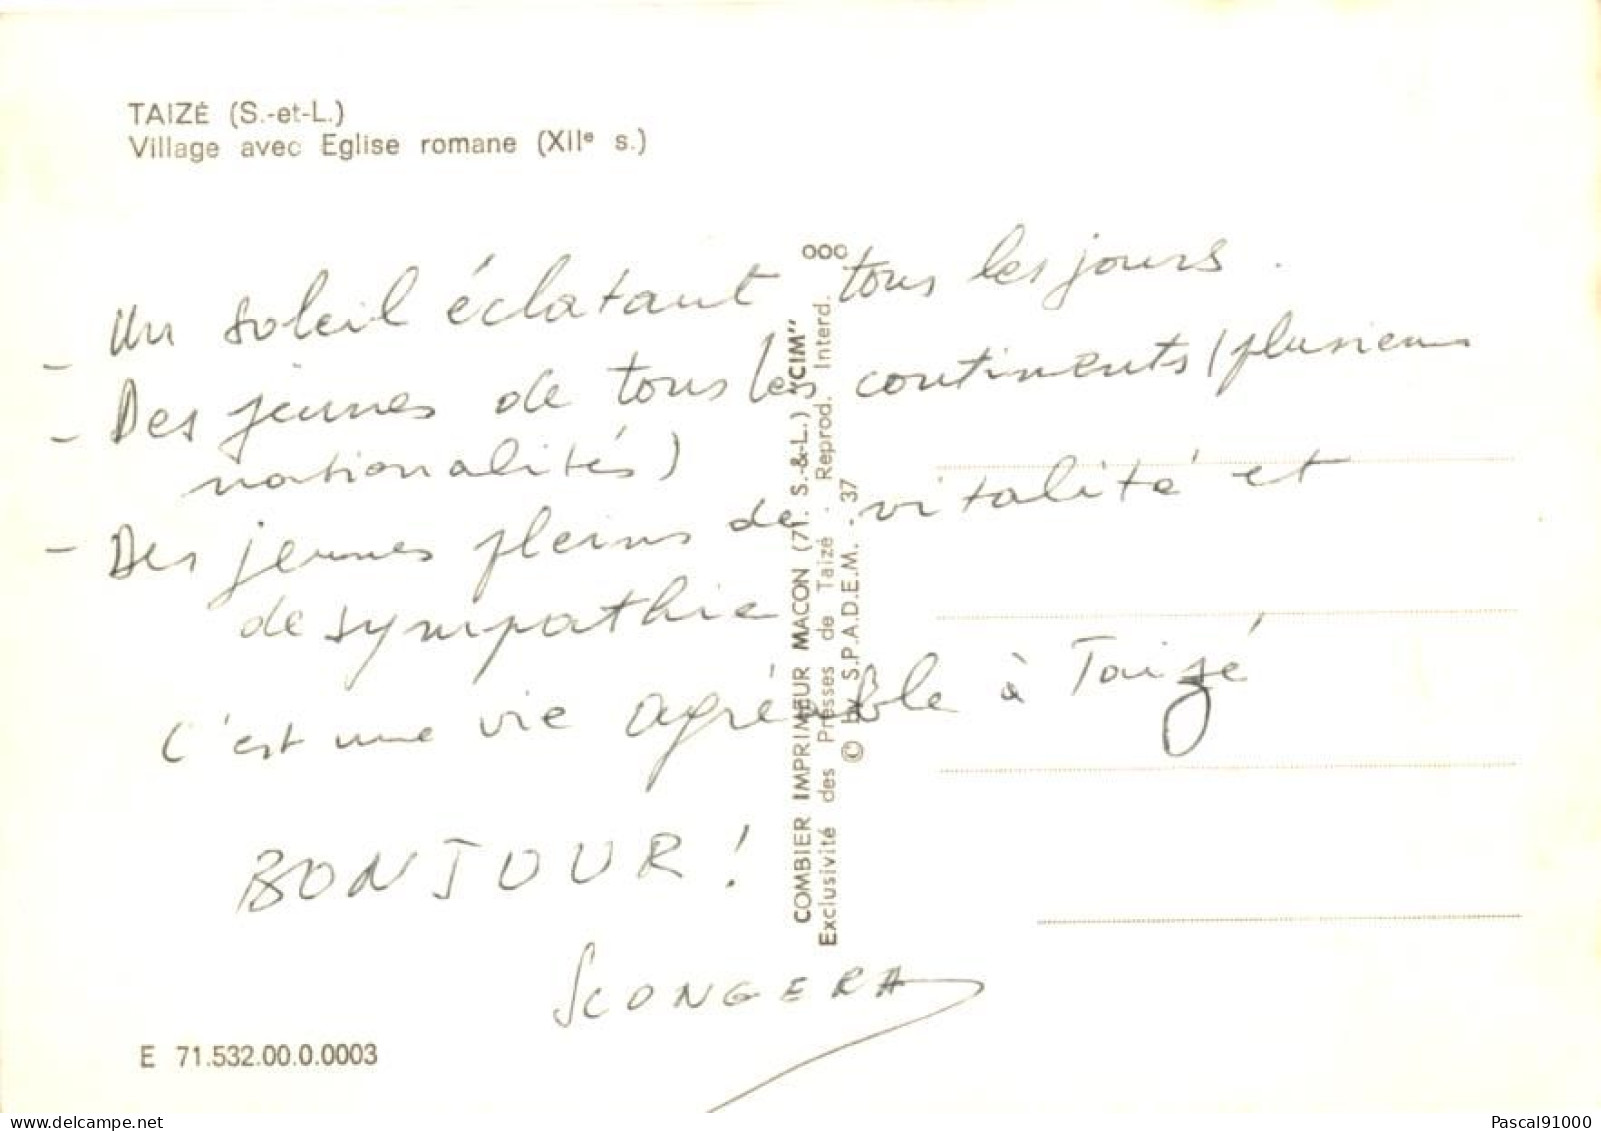 TAIZÉ (S.-et-L.)
Village avec Eglise romane (XIIe s.)
- Un soleil éclatant tous les jours.
- Des jeunes de tous les continents (plusieurs
nationalités)
- Des jeunes pleins de vitalité et
de sympathie
C'est une vie agréable à Taizé
BONJOUR !
SCONGERA
COMBIER IMPRIMEUR MACON (71. S.-&-L.) "CIM"
Exclusivité des Presses de Taizé . Reprod. Interd.
© by S.P.A.D.E.M. . 37
E 71.532.00.0.0003
www.delcampe.net
Pascal91000